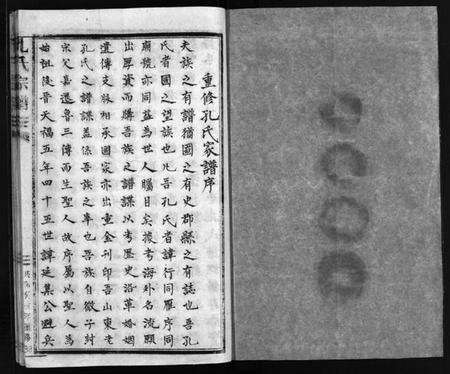 重修孔氏家譜序
夫族之有譜猶國之有史郡縣之有誌也吾孔
氏者國之望族也凡吾孔氏者諱行同雁序同
廟號亦同益為世人矚目矣據考海外名流願
出厚資而購吾族之譜諜以考歷史沿革婚姻
遺傳支脉相承國家亦出重金刊印吾山東老
孔氏之譜諜蓋係吾族之幸也吾族自微子封
宋父嘉遷魯三傳而生聖人故序屬以聖人為
始祖後晉天福五年四十五世諱延集公避兵
孔氏宗譜